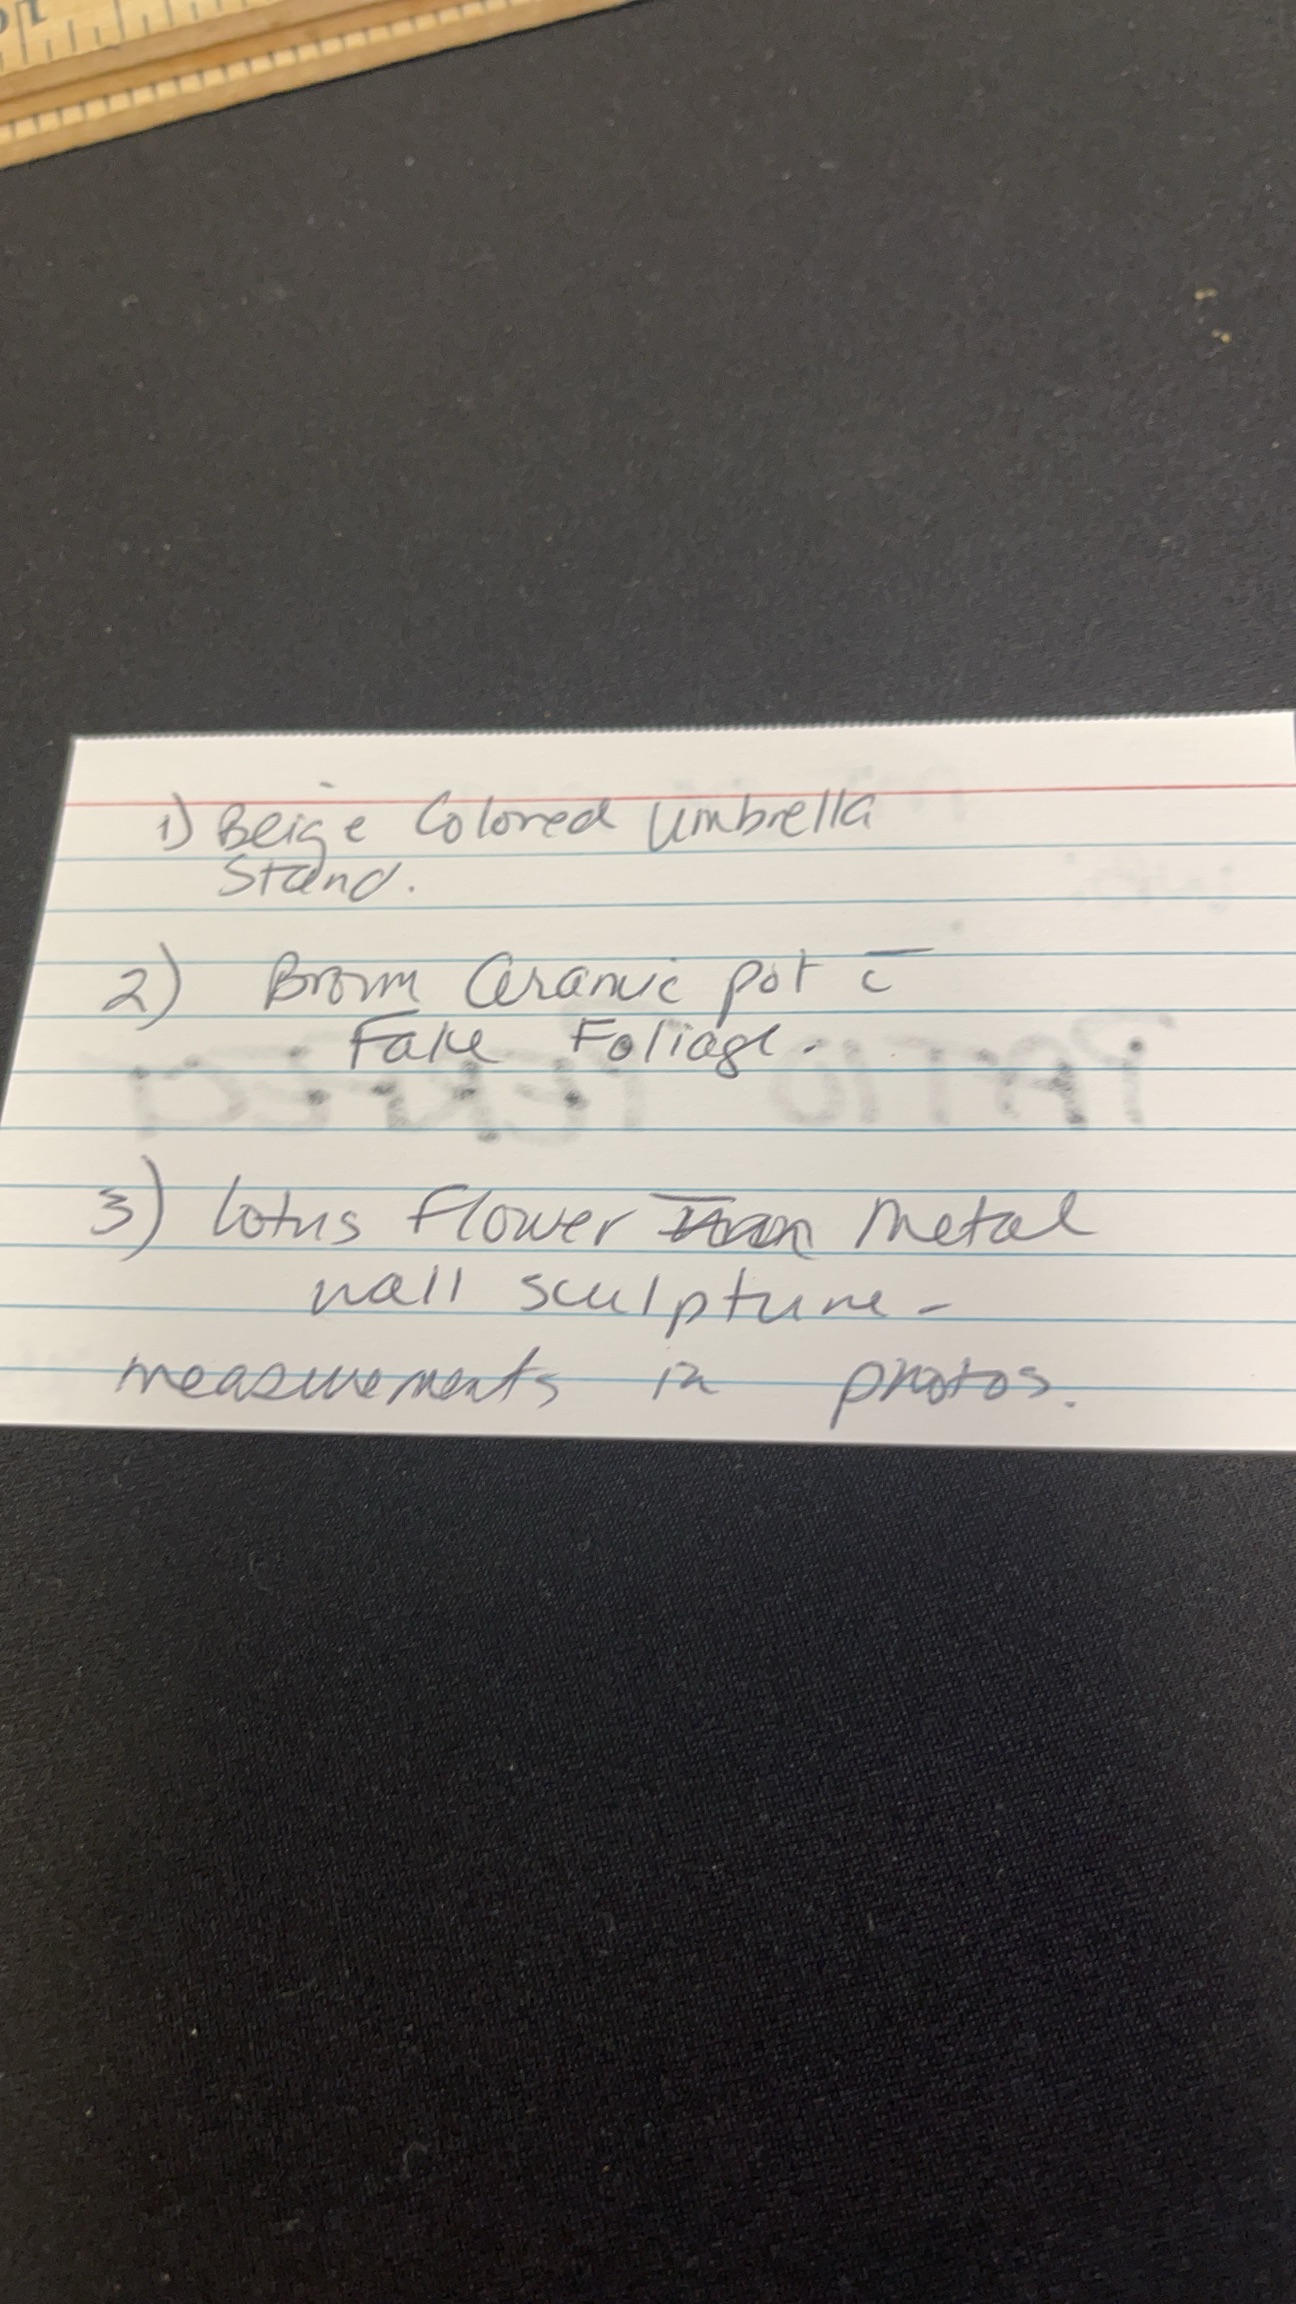 1) Beige Colored Umbrella
Stand.
2) Brown Ceramic pot c̄
Fake Foliage.
3) Lotus Flower Metal
wall sculpture -
measurements in photos.
PATIO PERFECT